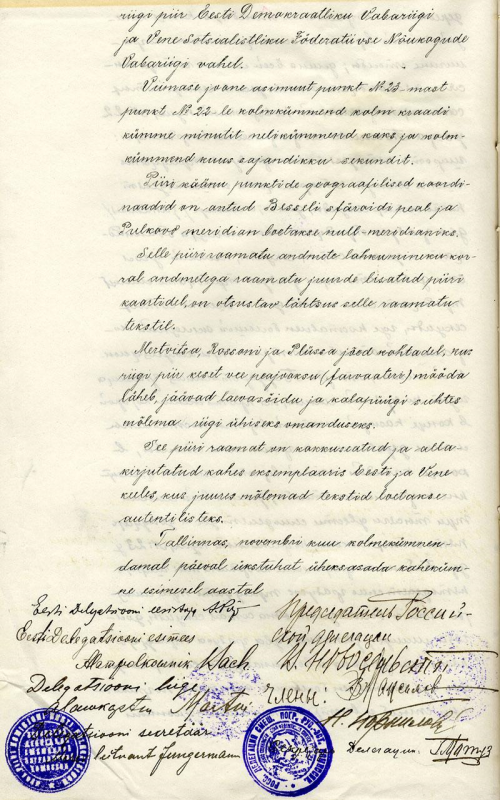 riigi piir Eesti Demokraatliku Vabariigi
ja Vene Sotsialistliku Föderatiivse Nõukogude
Vabariigi vahel.
Viimase joone asimuut punkt № 23-mast
punkt № 22-le kolmkümmend kolm kraadi
kümme minutit nelikümmend kaks ja kolm-
kümmend kuus sajandikku sekundit.
Piiri käänu punktide geograafilised koordi-
naadid on antud Besseli sfäroidi peal ja
Pulkovo meridian loetakse null-meridianiks.
Selle piiriraamatu andmete lahkumineku kor-
ral andmetega raamatu juurde lisatud piiri
kaartidel, on otsustav tähtsus selle raamatu
tekstil.
Mertvitsa, Rossoni ja Plüssa jõed kohtadel, kus
riigi piir keset vee peajooksu (farvaateri) mööda
läheb, jäävad laevasõidu ja kalapüügi suhtes
mõlema riigi ühiseks omanduseks.
See piiriraamat on kokkuseatud ja alla-
kirjutatud kahes eksemplaaris Eesti ja Vene
keeles, kus juures mõlemad tekstid loetakse
autentilisteks.
Tallinnas, novembri kuu kolmekümnen-
damal päeval ükstuhat üheksasada kaheküm-
ne esimesel aastal
Eesti Delegatsiooni esimees
Председатель Россий-
Eesti Delegatsiooni esimees
ской делегации
Delegatsiooni liige
члены:
Delegatsiooni secretäär
leitnant Jungermann
Секретарь Делегации